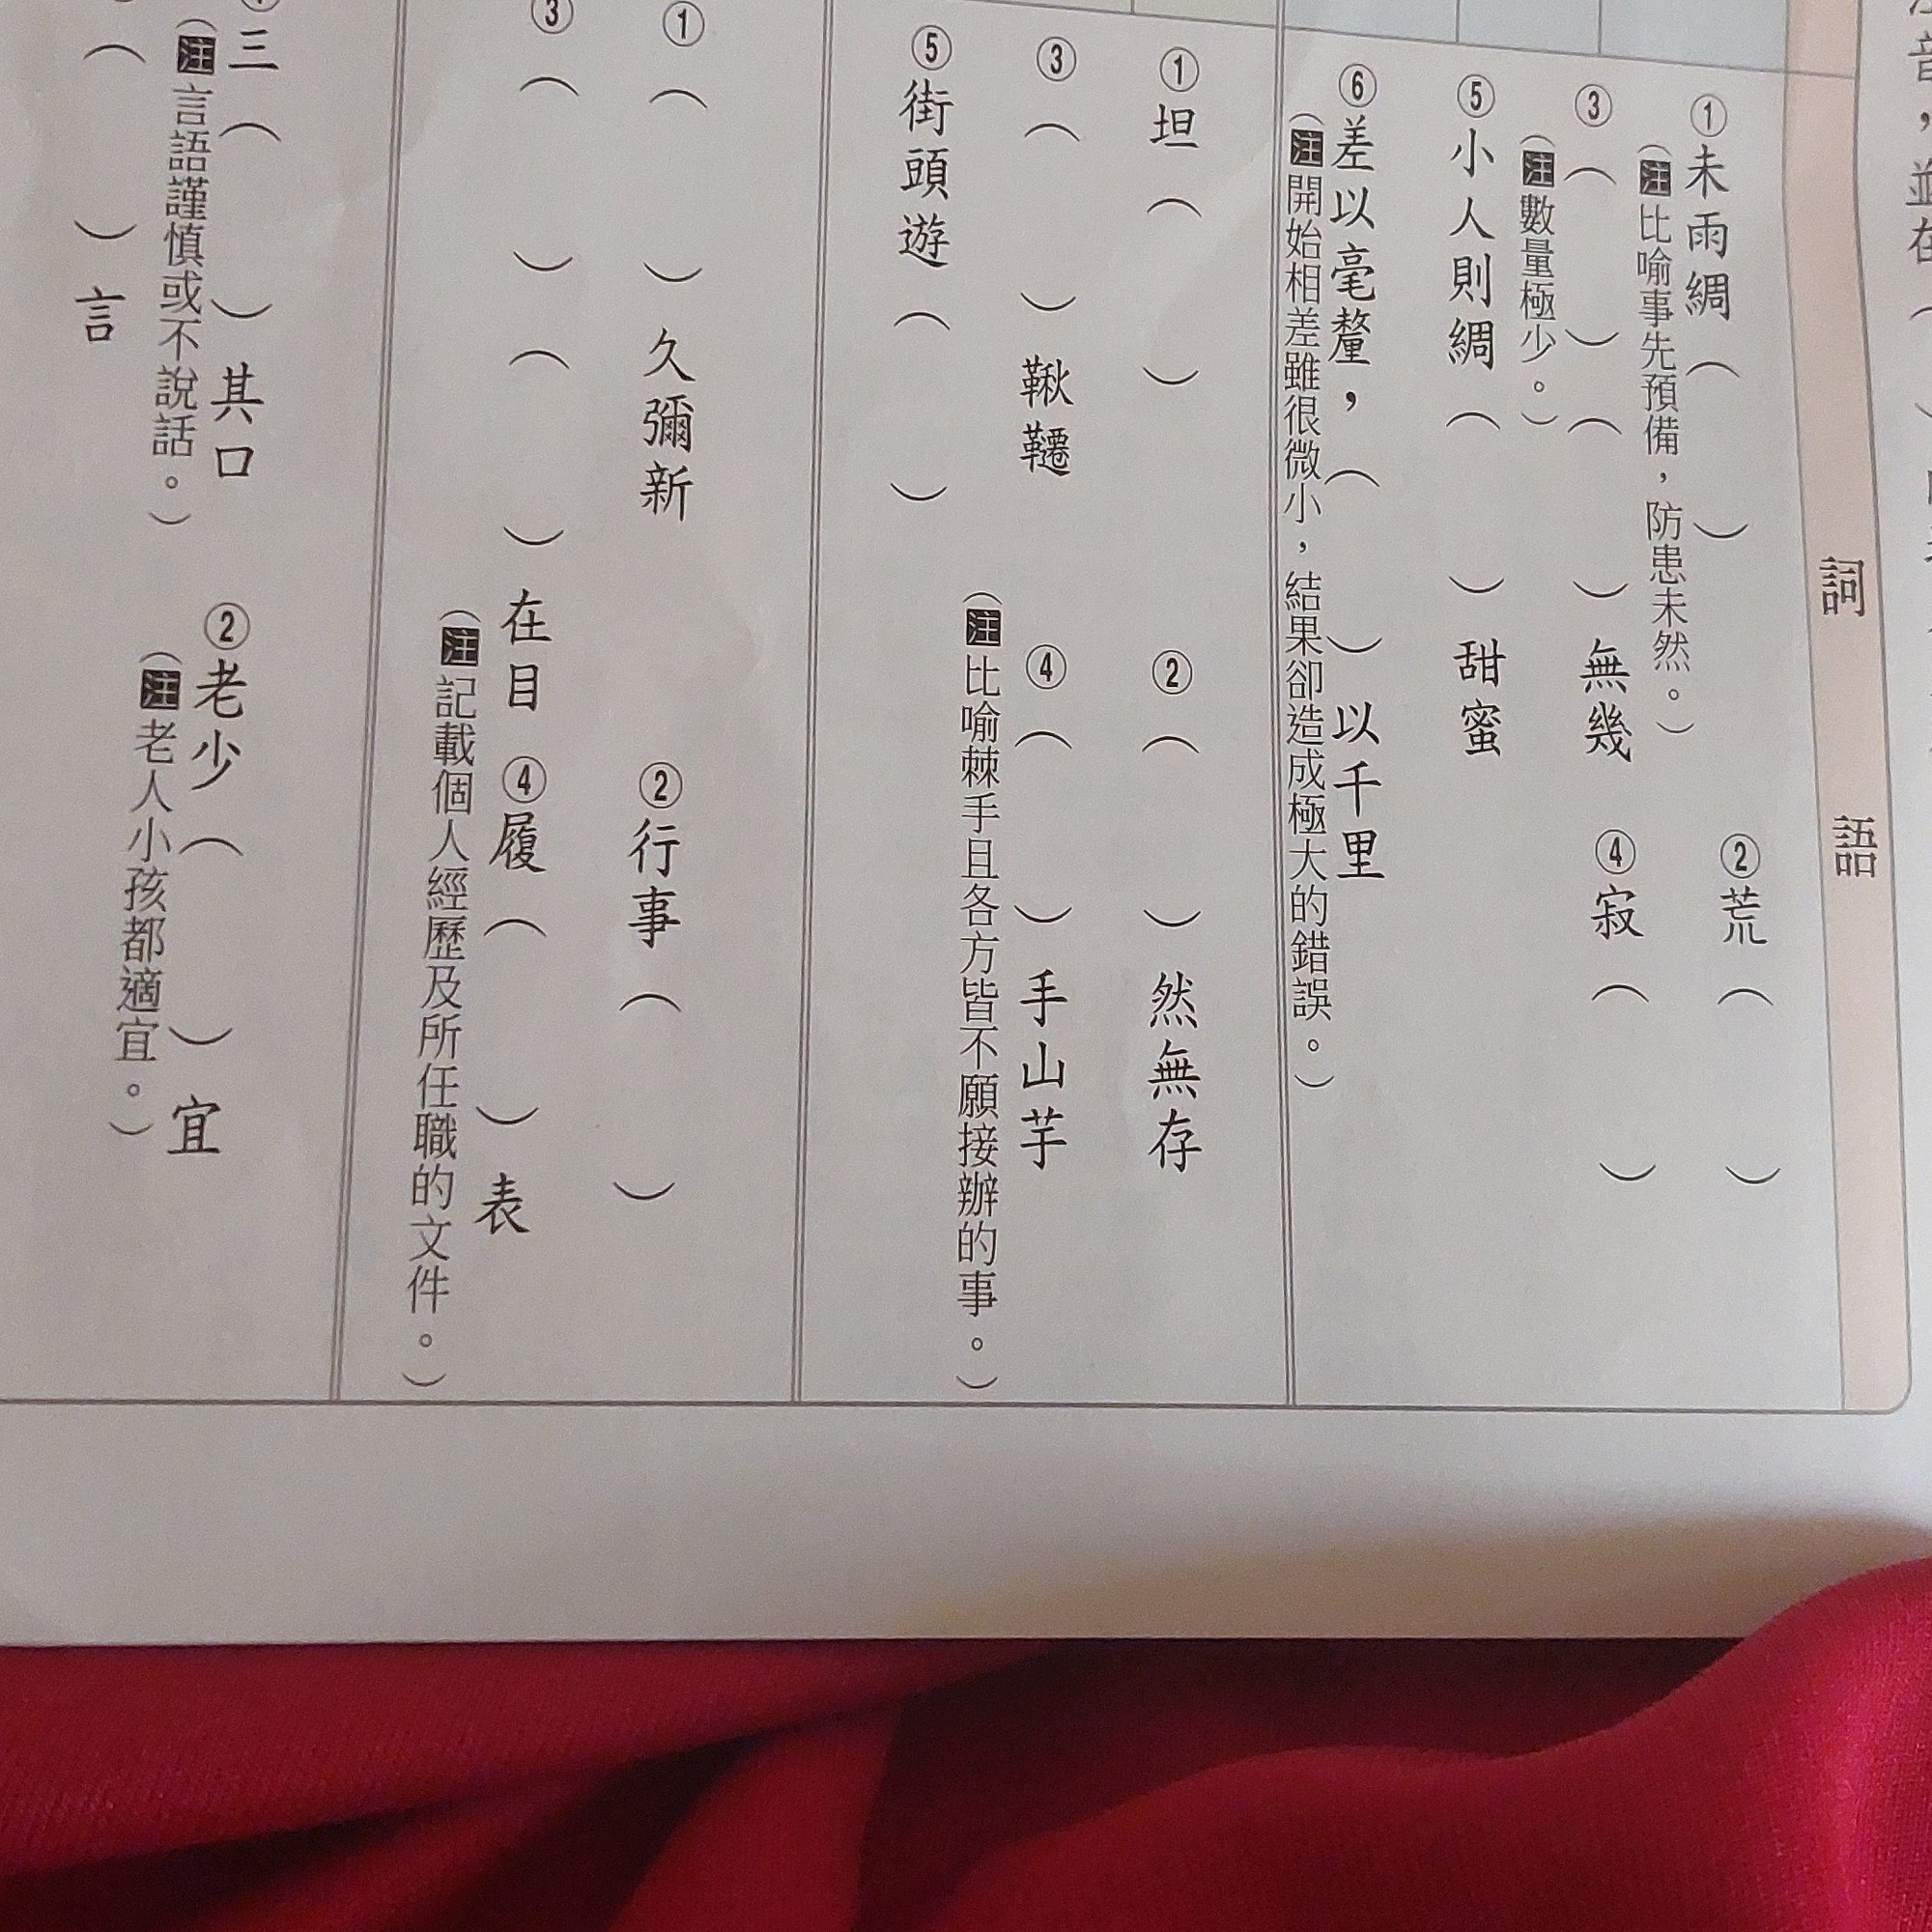 詞語
①未雨綢（　）
（注比喻事先預備，防患未然。）
②荒（　）
③（　）（　）無幾
（注數量極少。）
④寂（　）
⑤小人則綢（　）甜蜜
⑥差以毫釐，（　）以千里
（注開始相差雖很微小，結果卻造成極大的錯誤。）
①坦（　）
②（　）然無存
③（　）鞦韆
④（　）手山芋
（注比喻棘手且各方皆不願接辦的事。）
⑤街頭遊（　）
①（　）久彌新
②行事（　）
③（　）（　）在目
④履（　）表
（注記載個人經歷及所任職的文件。）
三（　）其口
（注言語謹慎或不說話。）
②老少（　）宜
（注老人小孩都適宜。）
（　）言